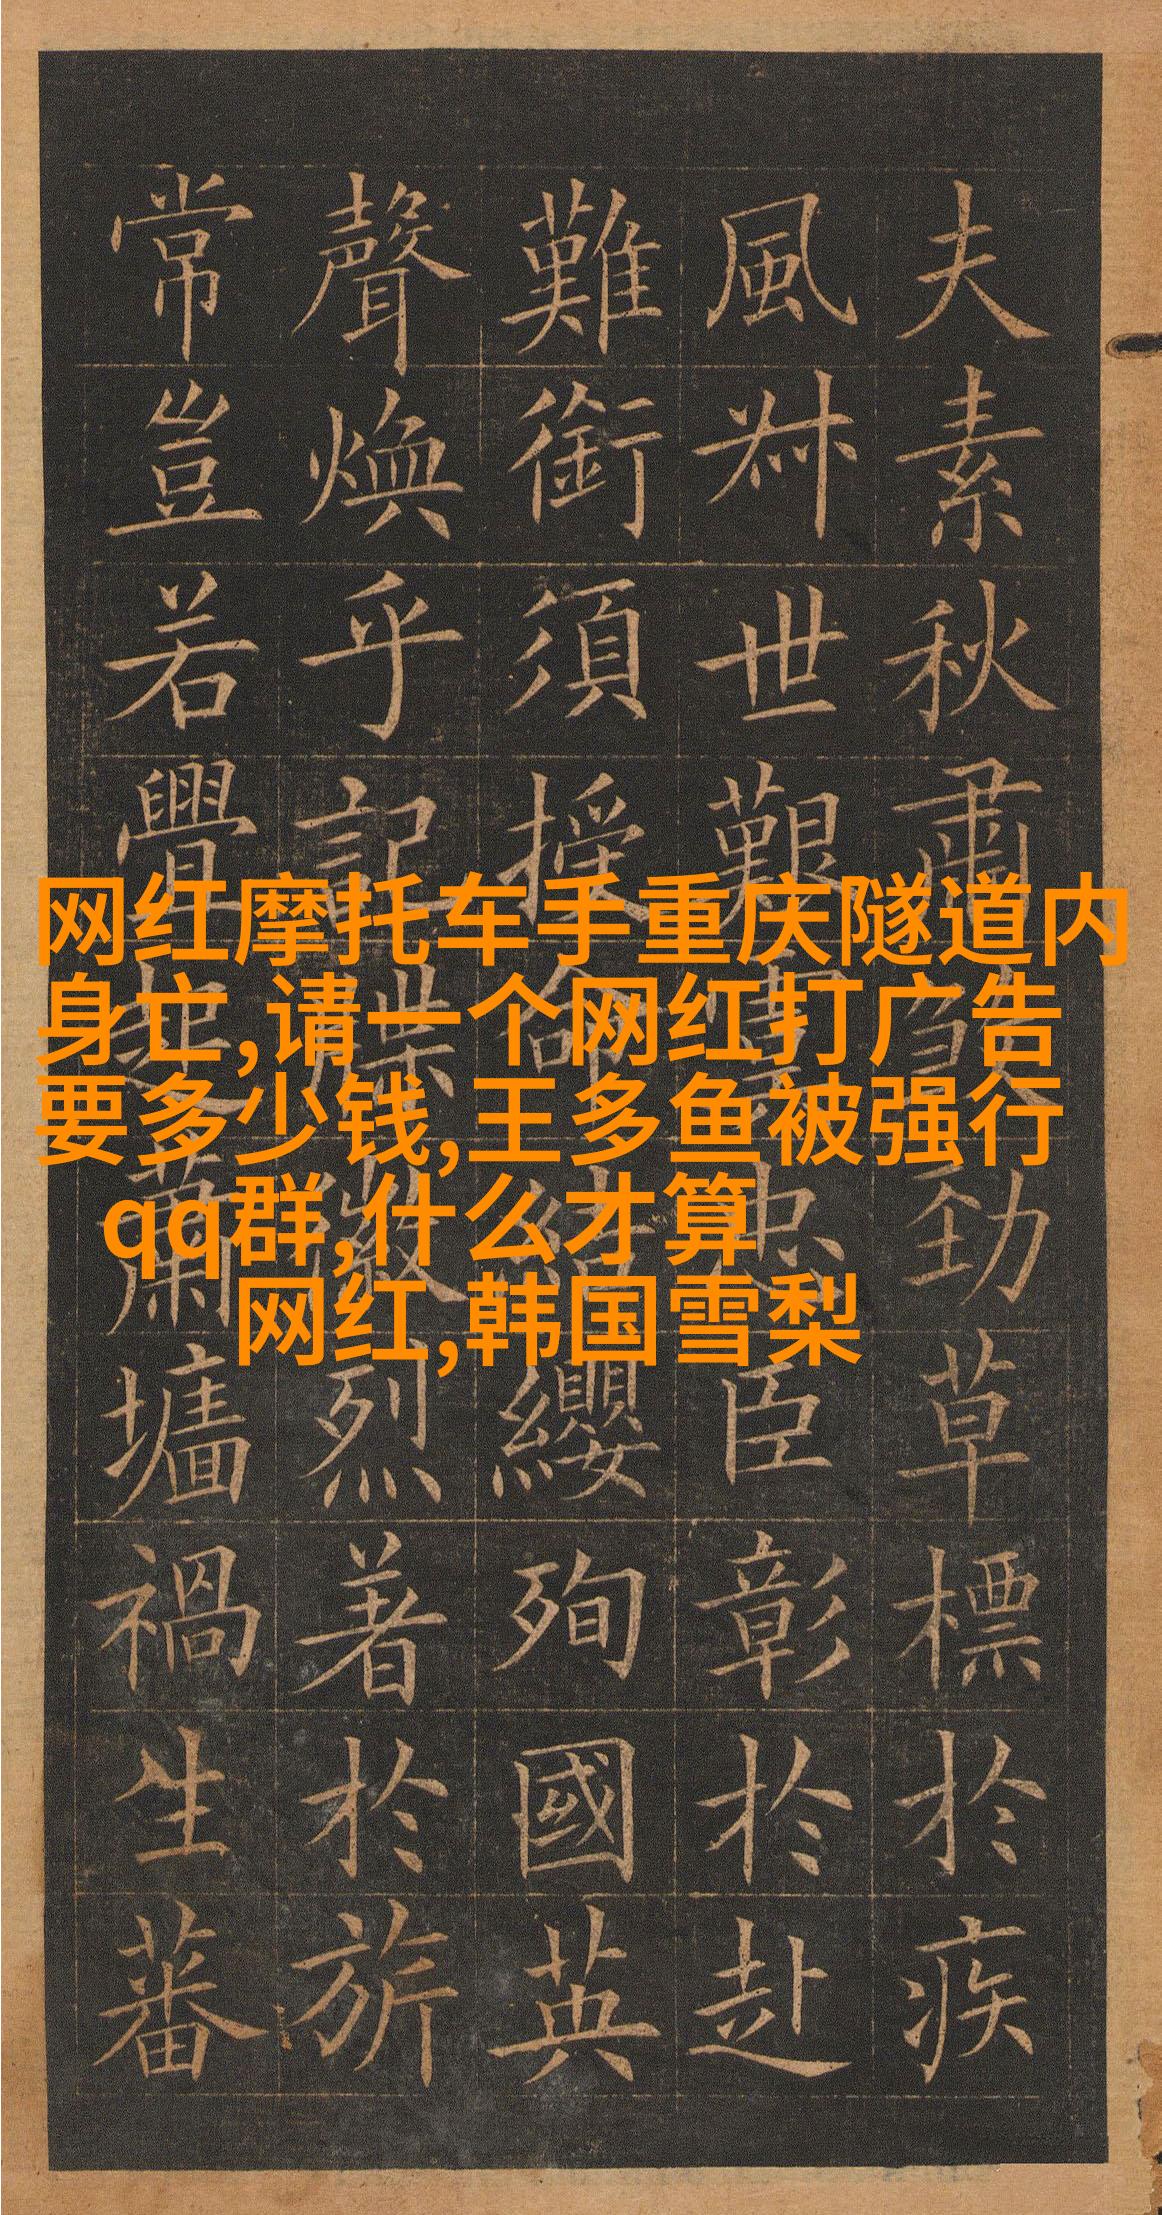 夫素秋肅煞勁草標於疾
風叔世艱虞忠臣彰於赴
難銜須授命結纓殉國英
聲煥乎記牒徽烈著於旂
常豈若釁起蕭墻禍生蕃
网红摩托车手重庆隧道内
身亡,请一个网红打广告
要多少钱,王多鱼被强行
qq群,什么才算
网红,韩国雪梨